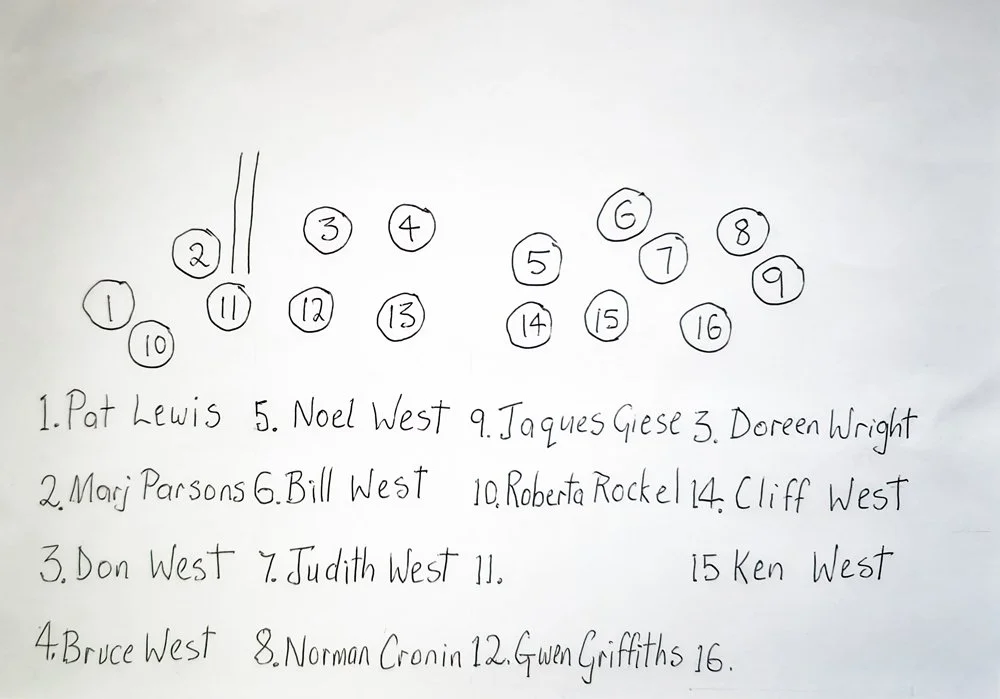 6
3 4 8
2 5 7
9
1 11 12 13 14 15 16
10
1. Pat Lewis 5. Noel West 9. Jaques Giese 3. Doreen Wright
2. Marj Parsons 6. Bill West 10. Roberta Rockel 14. Cliff West
3. Don West 7. Judith West 11. 15 Ken West
4. Bruce West 8. Norman Cronin 12. Gwen Griffiths 16.